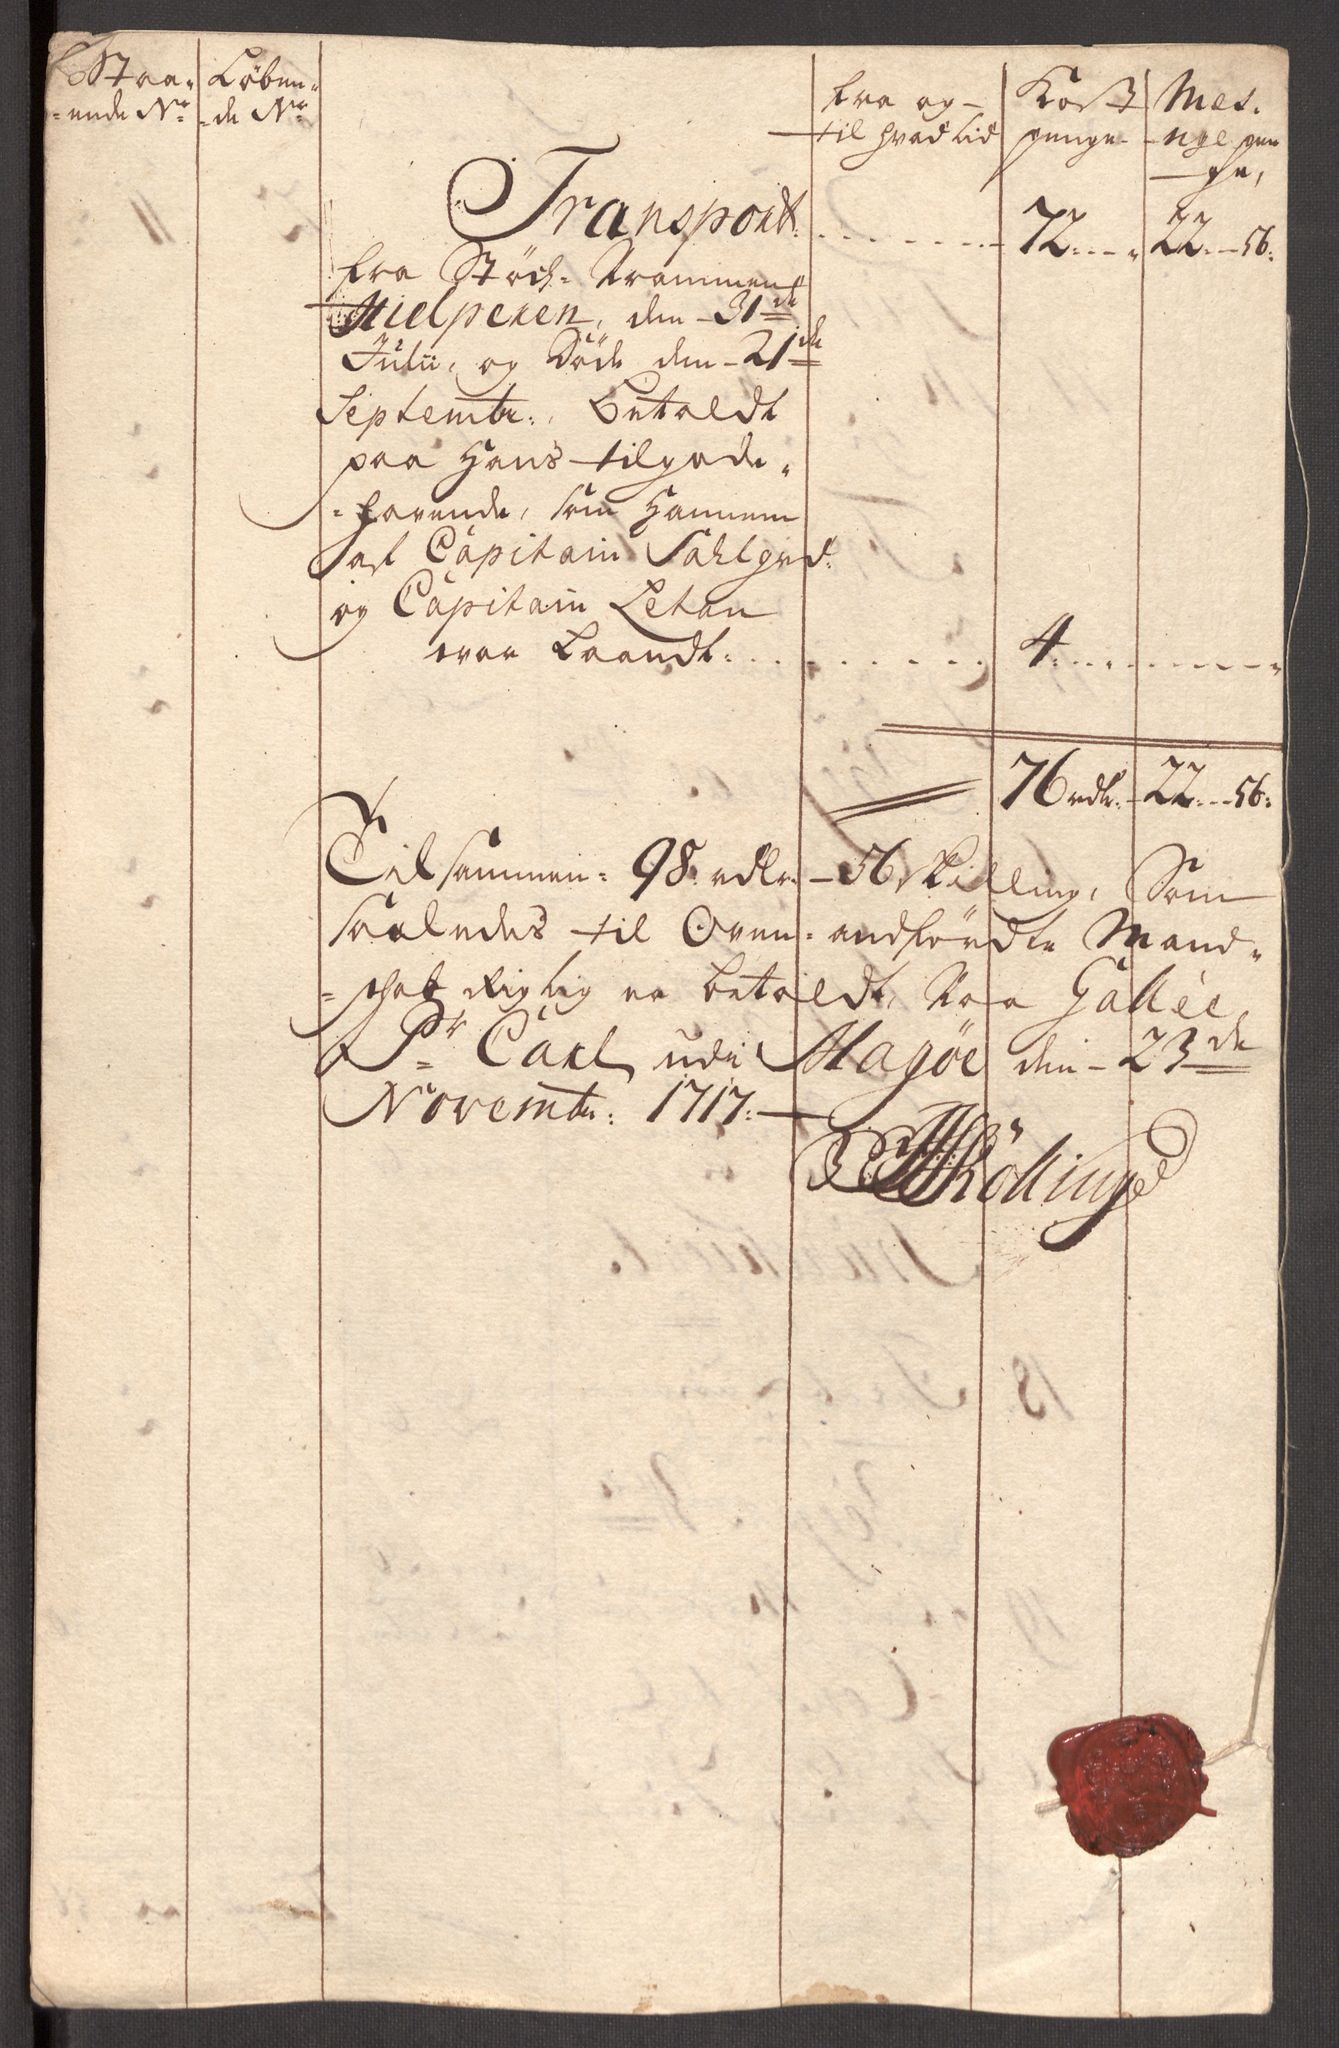 Staa- Løben-
-ende Nr. -de Nr.
fra og Kost Mes-
til hvad tid penge nge pen
ge,
Transport: 72 22 56:
fra Stöck-Prammen
Hielperen, den 31de
Julii, og Döde den 21de
Septembr:, Betaldt
paa Hans tilgode-
-havende, som Hannem
af Capitain Sahlgrd:
og Capitain Leton
var Laandt 4
76 rdlr: 22 56:
Tilsammen 98 rdlr. 56 skilling, Som
saaledes til Oven-andförte Mand-
-skab Rigtig er betaldt, Paa Galléi
Pr Carl udi Magöe den 23de
Novembr: 1717:
Kölling